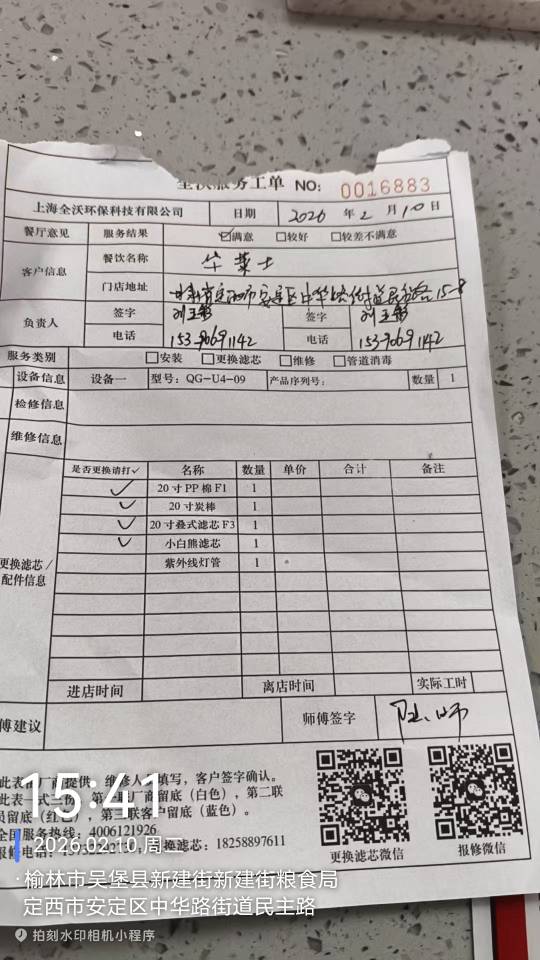 全沃服务工单 NO: 0016883
上海全沃环保科技有限公司 日期 2026 年 2 月 10 日
餐厅意见 服务结果 ☑满意 □较好 □较差不满意
客户信息 餐饮名称 华莱士
门店地址 甘肃省定西市安定区中华路街道民主路15-8
负责人 签字 签字
电话 电话
服务类别 □安装 □更换滤芯 □维修 □管道消毒
设备信息 设备一 型号：QG-U4-09 产品序列号： 数量 1
检修信息
维修信息
更换滤芯/配件信息 是否更换请打✓ 名称 数量 单价 合计 备注
✓ 20寸PP棉F1 1
✓ 20寸炭棒 1
✓ 20寸叠式滤芯F3 1
✓ 小白熊滤芯 1
紫外线灯管 1
进店时间 离店时间 实际工时
傅建议 师傅签字
此表 厂商提供，维修人 填写，客户签字确认。
此表一式三份 厂商留底（白色），第二联
员留底（红色），第三联客户留底（蓝色）。
全国服务热线：4006121926
报修电话： 更换滤芯：18258897611
更换滤芯微信 报修微信
15:41
2026.02.10 周二
榆林市吴堡县新建街新建街粮食局
定西市安定区中华路街道民主路
拍刻水印相机小程序